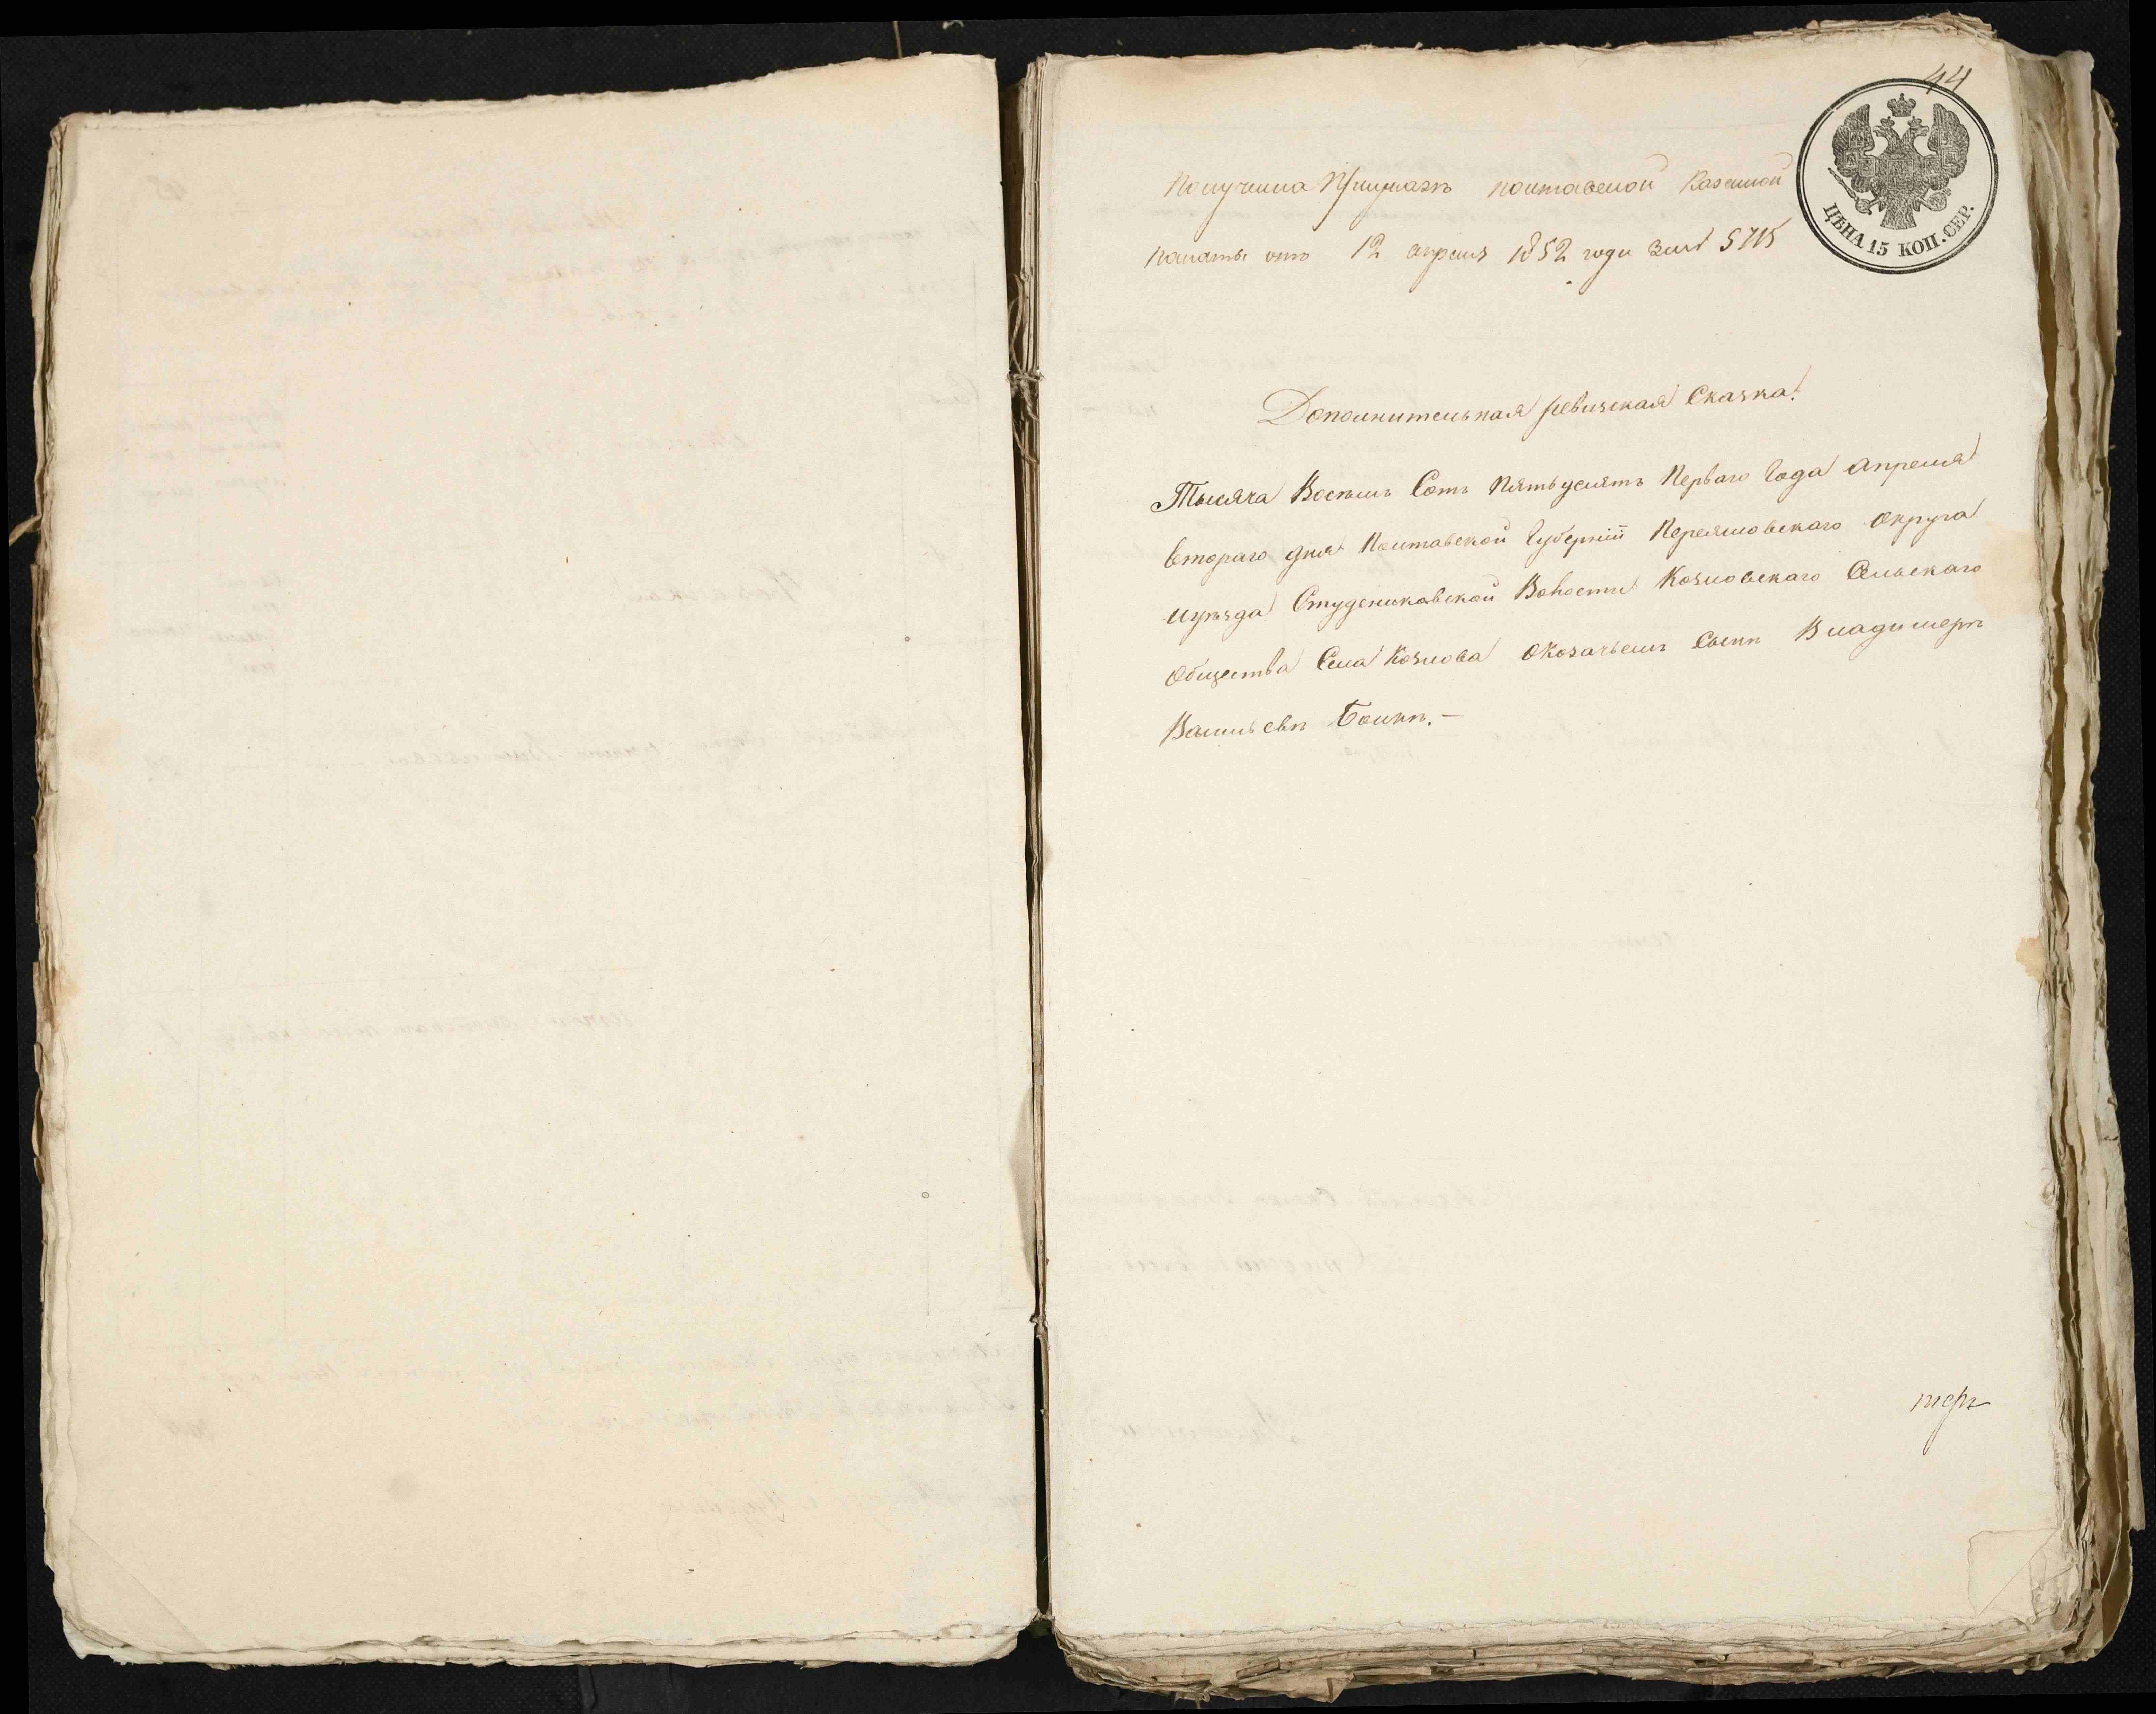 44
ЦѢНА 15 КОП. СЕР.
Получена При указѣ полтавской Казенной
палаты отъ 12 апреля 1852 года за № 5715
Дополнительная ревизская Сказка.
Тысяча Восемь Сотъ Пятьдесятъ Перваго Года апреля
втораго дня Полтавской Губерніи Переясловскаго Округа
иуезда Студениковской Волости Козловскаго Сельскаго
Общества Села Козлова Оказачьемъ Сынѣ Владимерѣ
Васильевѣ Бѣликѣ.—